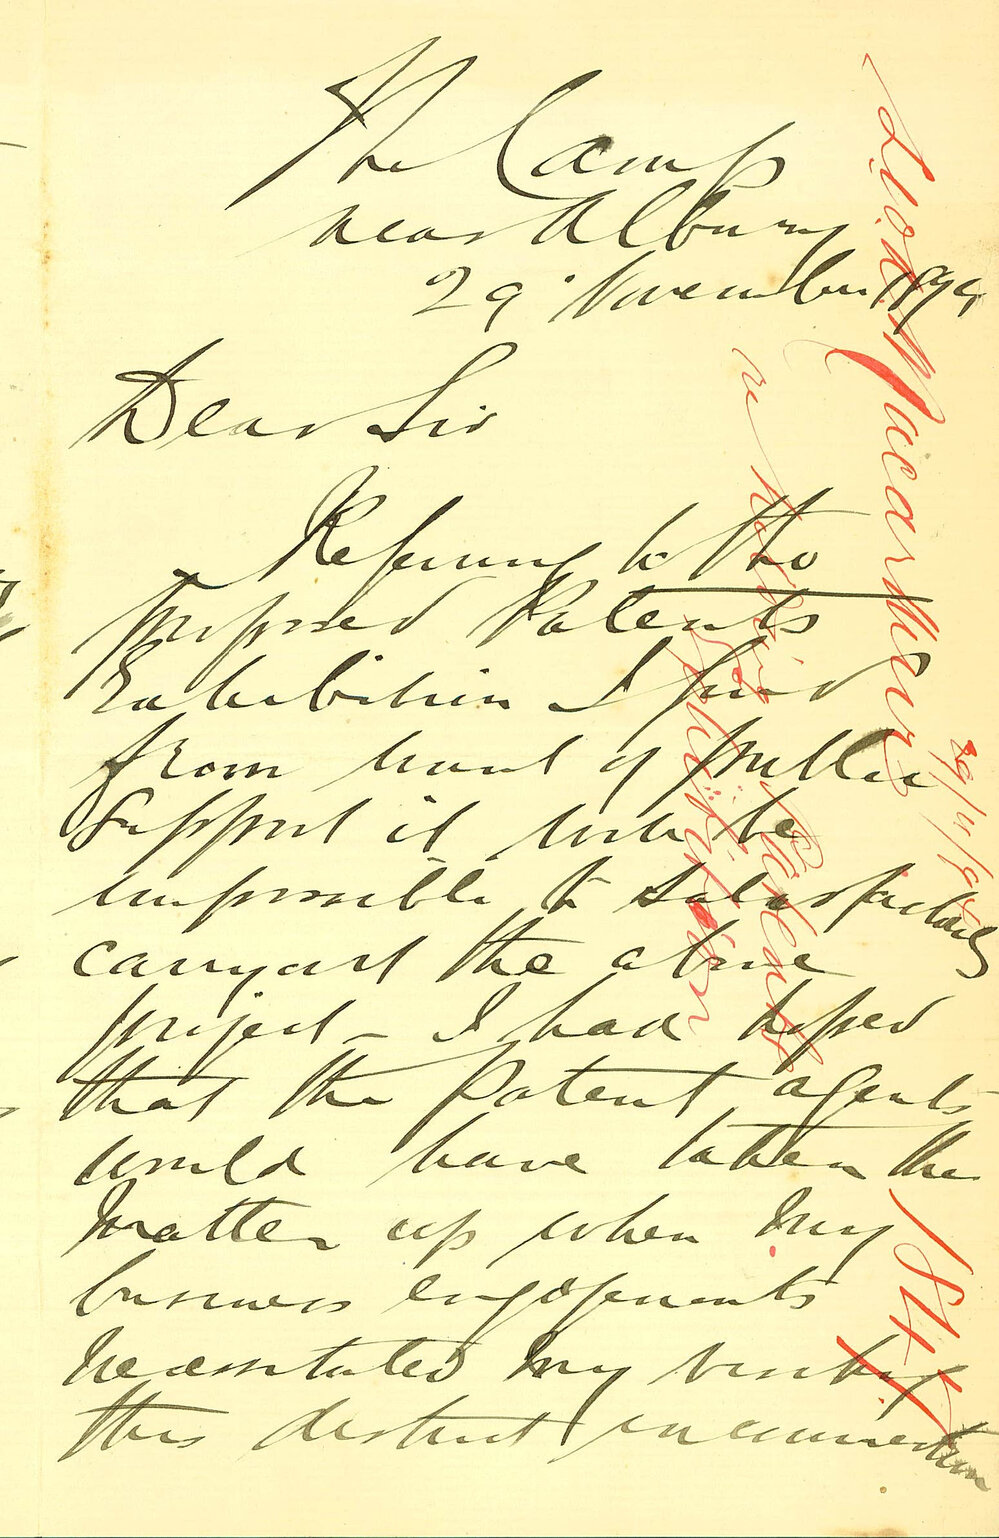 The Camp
near Albury
29 November 1894
Dear Sir
Referring to the
proposed Patents
Exhibition I find
from want of public
support it will be
impossible to satisfactorily
carryout the above
project - I had hoped
that the Patent agents
would have taken the
matter up when my
business engagements
necessitated my visiting
this district in connection
re holding
Patents
Exhibition
29/11/94